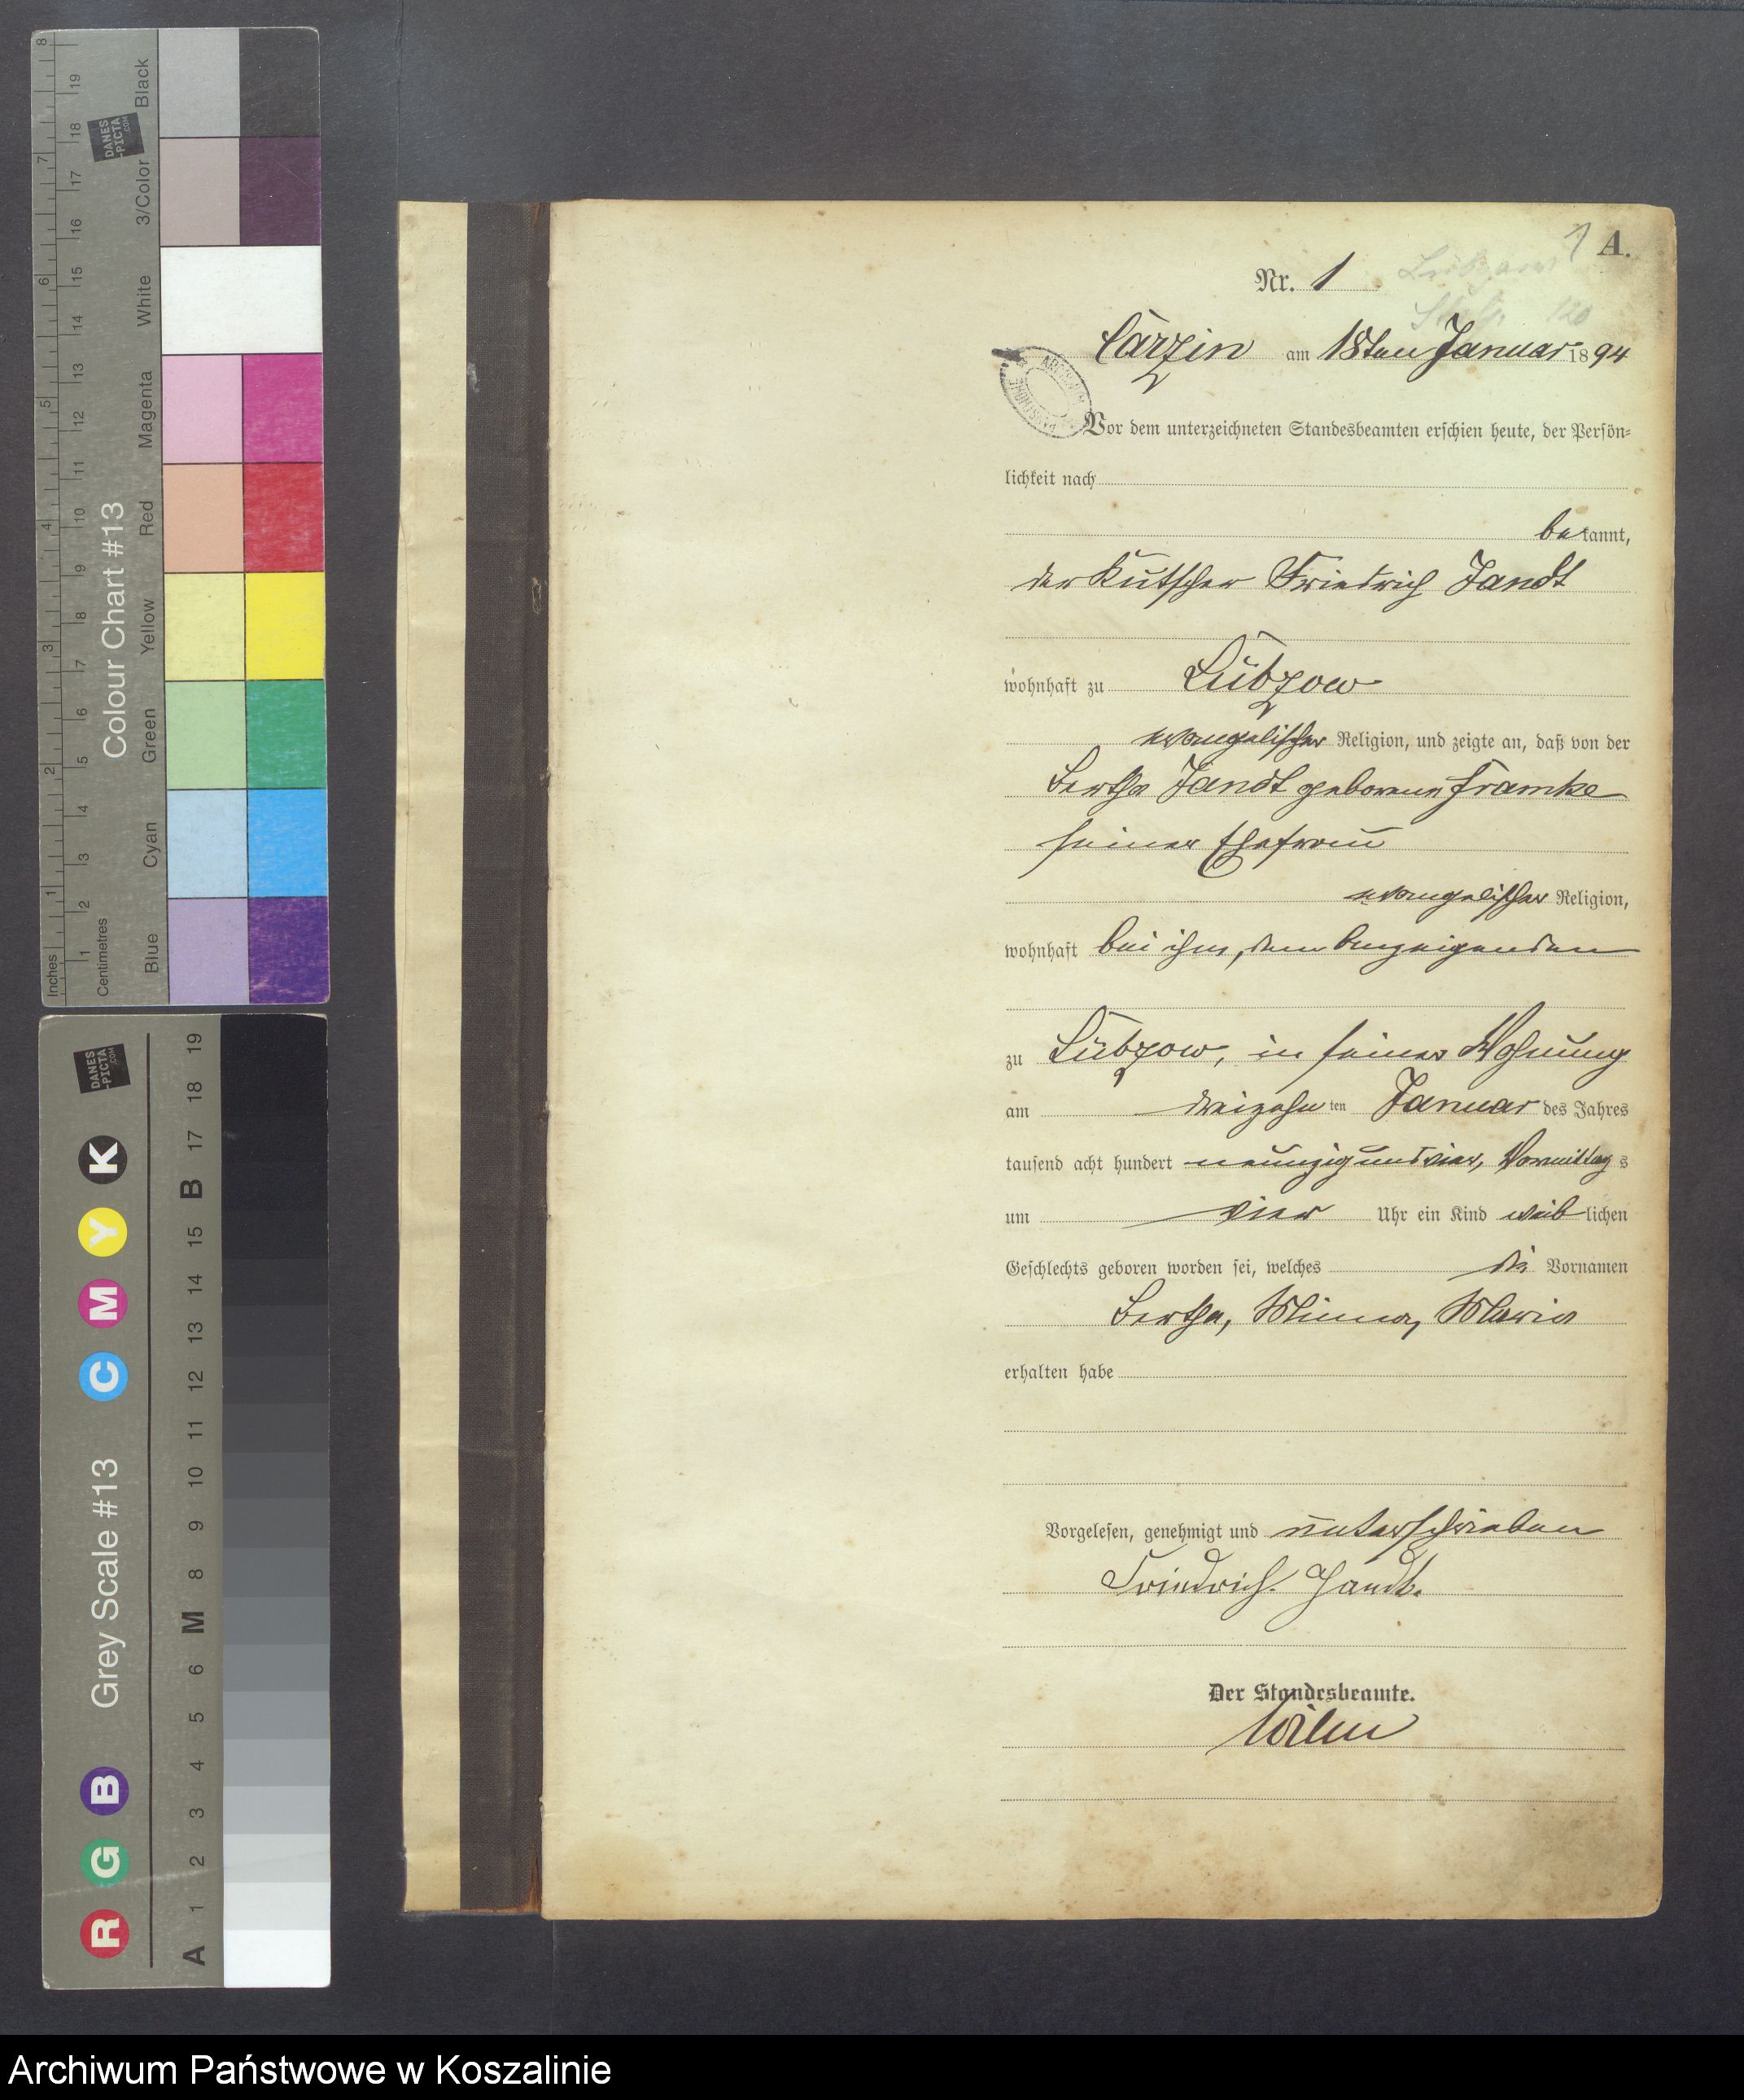 Inches
Centimetres
Colour Chart #13
Blue
Cyan
Green
Yellow
Red
Magenta
White
3/Color
Black
DANES
-PICTA
.COM
Grey Scale #13
R G B C M Y K
A 1 2 3 4 5 6 M 8 9 10 11 12 13 14 15 B 17 18 19
1 A.
Nr. 1
120
Carzin am 18ten Januar 1894
Vor dem unterzeichneten Standesbeamten erschien heute, der Persön-
lichkeit nach
bekannt,
der Kutscher Friedrich Jandt
wohnhaft zu Lübzow
evangelischer Religion, und zeigte an, daß von der
Bertha Jandt geborenen Framke
seiner Ehefrau
evangelischer Religion,
wohnhaft bei ihm, dem Anzeigenden
zu Lübzow, in seiner Wohnung
am dreizehnten Januar des Jahres
tausend acht hundert neunzig und vier, Vormittags
um vier Uhr ein Kind weiblichen
Geschlechts geboren worden sei, welches die Vornamen
Bertha, Minna, Marie
erhalten habe
Vorgelesen, genehmigt und unterschrieben
Friedrich Jandt.
Der Standesbeamte.
Wilm
Archiwum Państwowe w Koszalinie